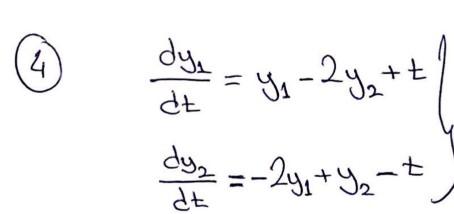 ④ dy₁/dt = y₁ - 2y₂ + t
dy₂/dt = -2y₁ + y₂ - t }